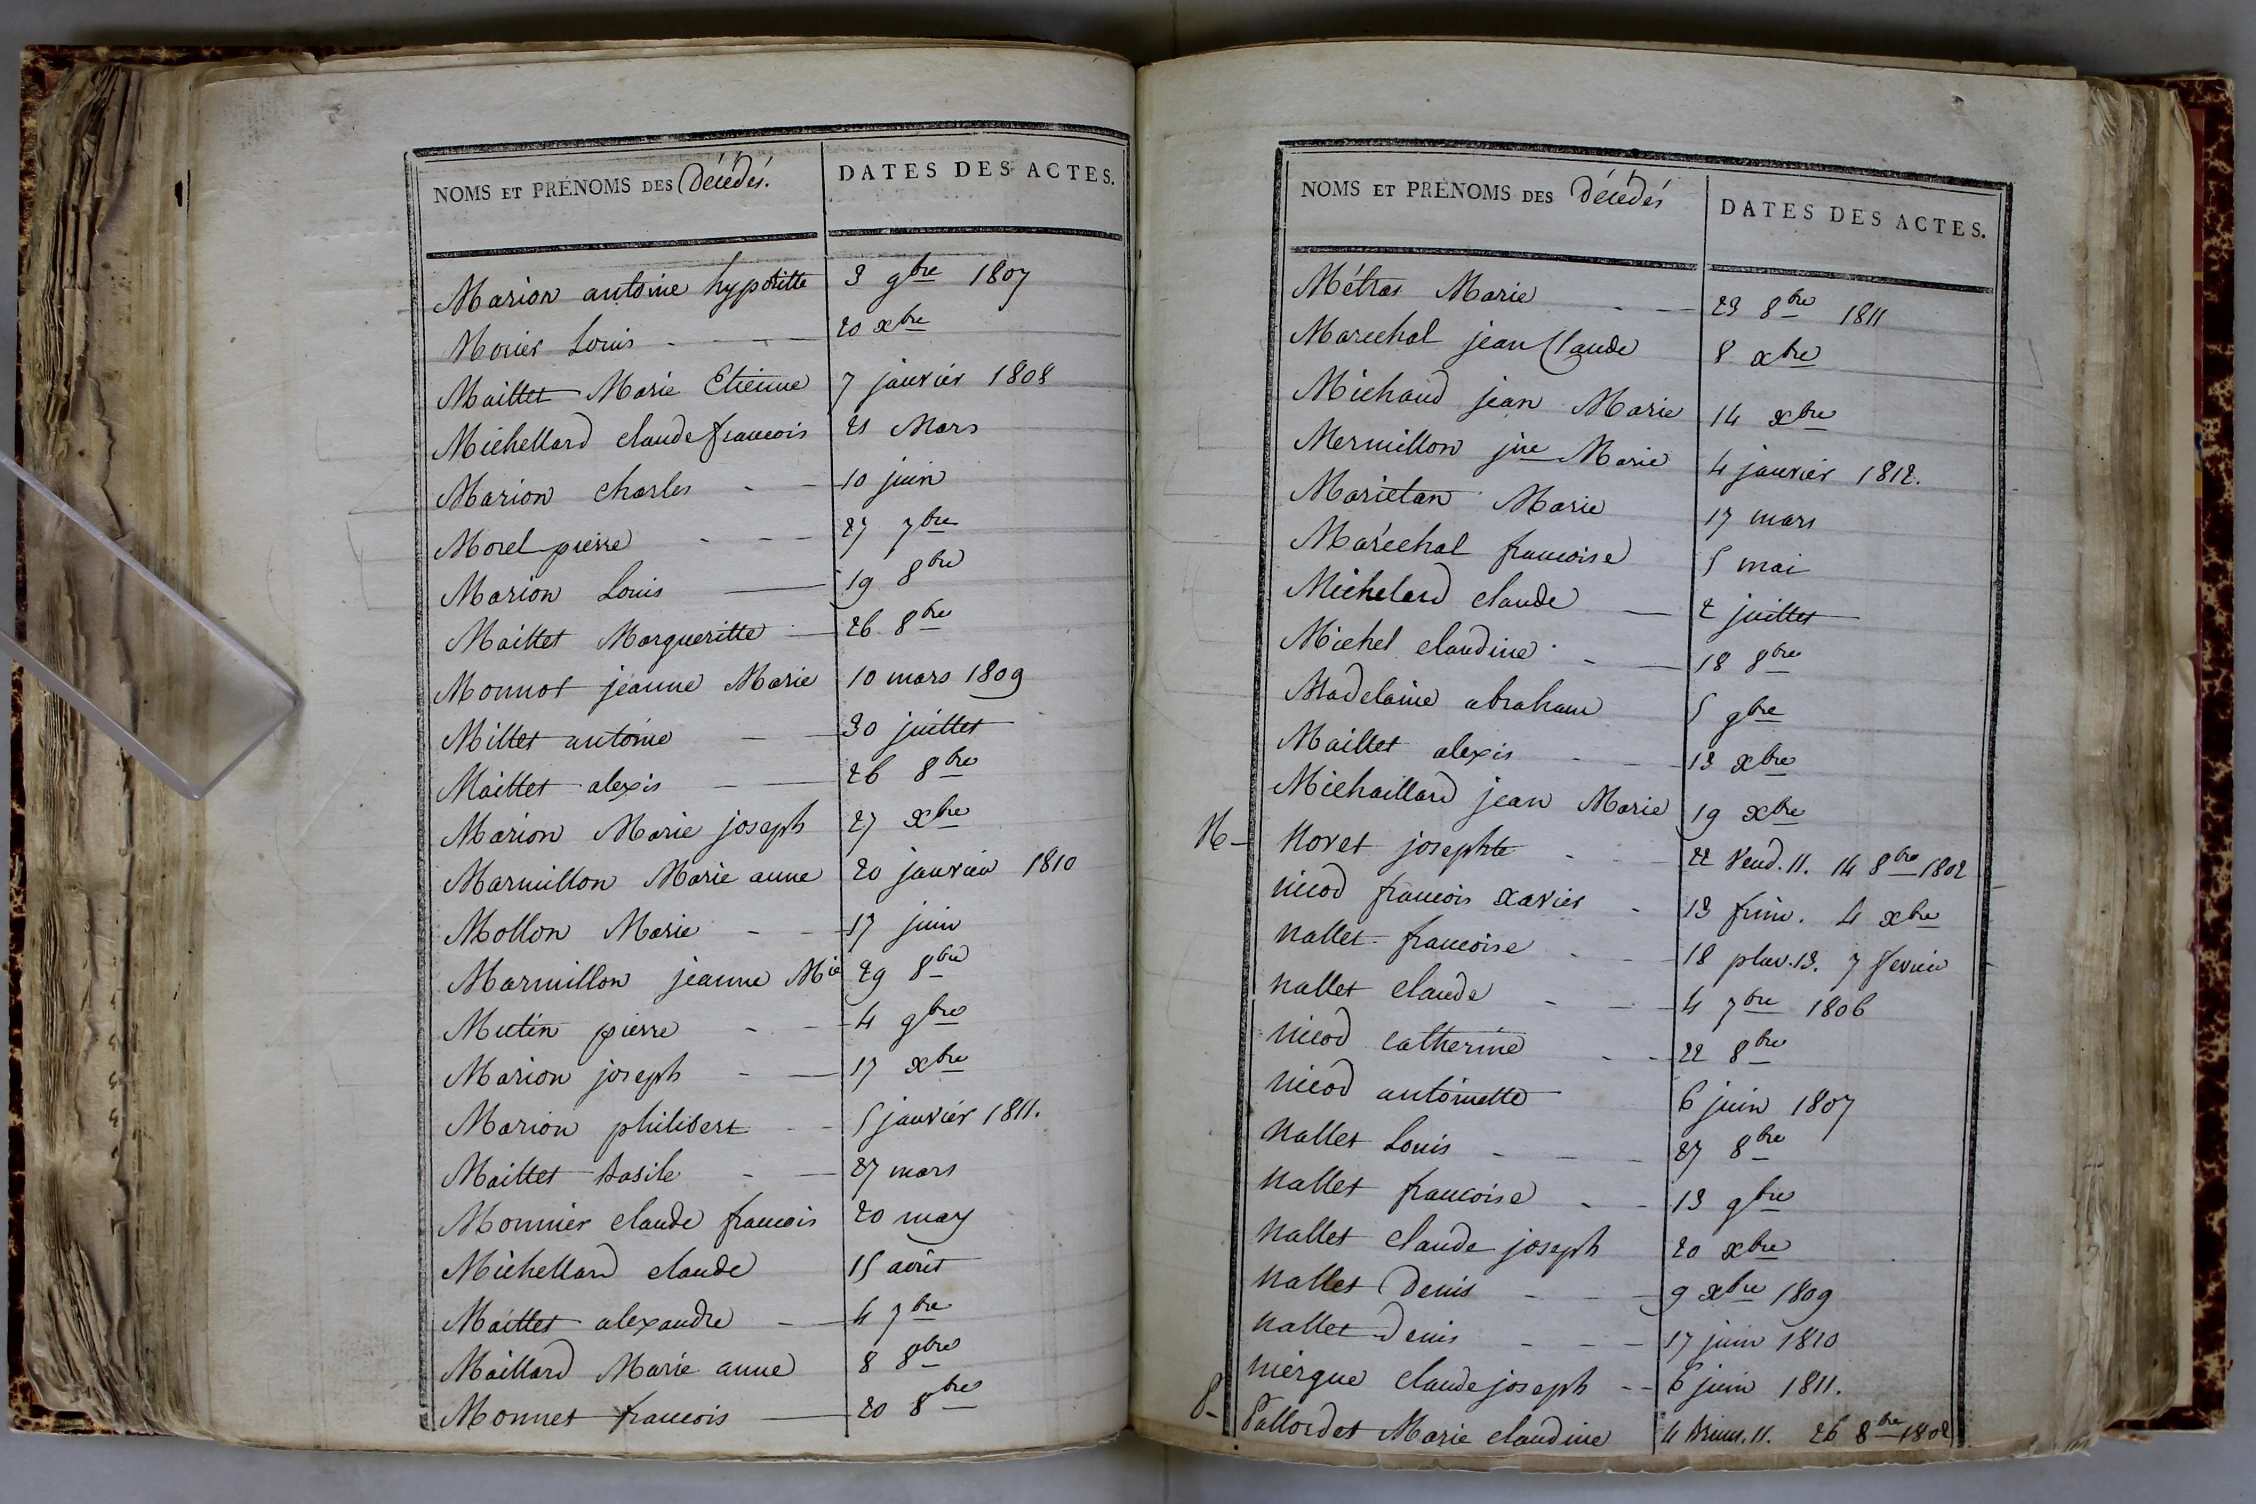 NOMS ET PRÉNOMS DES Décédés. DATES DES ACTES.
Marion antoine hypolitte 3 9bre 1807
Morier Louis - - - 20 xbre
Maillet Marie Etienne 7 janvier 1808
Michellard claude francois 21 Mars
Marion charles - - 10 juin
Morel pierre - - - 27 7bre
Marion Louis — 19 8bre
Maillet Margueritte — 26 8bre
Monnot jeanne Marie 10 mars 1809
Millet antoine — — 30 juillet
Maillet alexis — — 26 8bre
Marion Marie joseph 27 xbre
Marmillon Marie anne 20 janvier 1810
Mollon Marie - - 17 juin
Marmillon jeanne Mie 29 8bre
Mutin pierre - - 4 9bre
Marion joseph - — 17 xbre
Marion philibert - - 5 janvier 1811.
Maillet basile - — 27 mars
Monnier claude francois 20 may
Michellard claude 15 août
Maillet alexandre — 4 7bre
Maillard Marie anne 8 8bre
Monnet francois — 20 8bre
NOMS ET PRÉNOMS DES Décédés DATES DES ACTES.
Métras Marie - — 23 8bre 1811
Marechal jean Claude 8 xbre
Michaud jean Marie 14 xbre
Mermillon jne Marie 4 janvier 1812.
Marietan Marie 17 mars
Maréchal francoise 5 mai
Michelard claude — 2 juillet
Michel claudine - — 18 8bre
Madelaine abraham 5 9bre
Maillet alexis - - - 13 xbre
Michaillard jean Marie 19 xbre
N - Noret josephte - - - 22 Vend. 11. 14 8bre 1802
nicod francois xavier - 13 frim. 4 xbre
nallet francoise - - - 18 pluv. 13. 7 fevrier
nallet claude - - - 4 7bre 1806
nicod catherine - - 22 8bre
nicod antoinette 6 juin 1807
nallet Louis - - - 27 8bre
nallet francoise - - 13 9bre
nallet claude joseph 20 xbre
nallet Denis - - - 9 xbre 1809
nallet Denis - - - 17 juin 1810
niergue claude joseph - - 6 juin 1811.
P - Pallordet Marie claudine 4 brum. 11. 26 8bre 1802